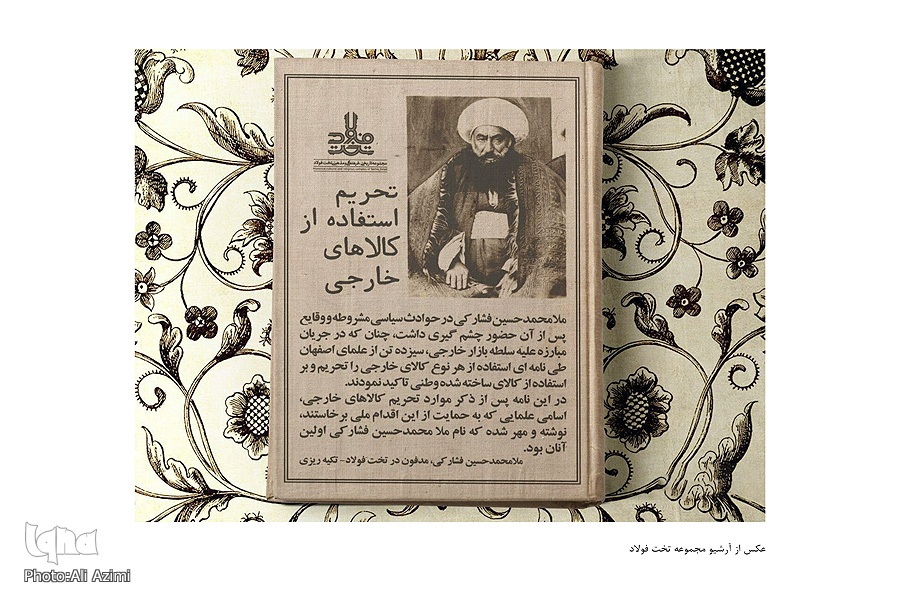 تخت فولاد
مجموعه تاریخی، فرهنگی و مذهبی تخت فولاد
تحریم
استفاده از
کالاهای
خارجی
ملامحمدحسین فشارکی در حوادث سیاسی مشروطه و وقایع
پس از آن حضور چشم گیری داشت، چنان که در جریان
مبارزه علیه سلطه بازار خارجی، سیزده تن از علمای اصفهان
طی نامه ای استفاده از هر نوع کالای خارجی را تحریم و بر
استفاده از کالای ساخته شده وطنی تاکید نمودند.
در این نامه پس از ذکر موارد تحریم کالاهای خارجی،
اسامی علمایی که به حمایت از این اقدام ملی برخاستند،
نوشته و مهر شده که نام ملا محمدحسین فشارکی اولین
آنان بود.
ملامحمدحسین فشارکی، مدفون در تخت فولاد- تکیه ریزی
عکس از آرشیو مجموعه تخت فولاد
Iqna
Photo:Ali Azimi